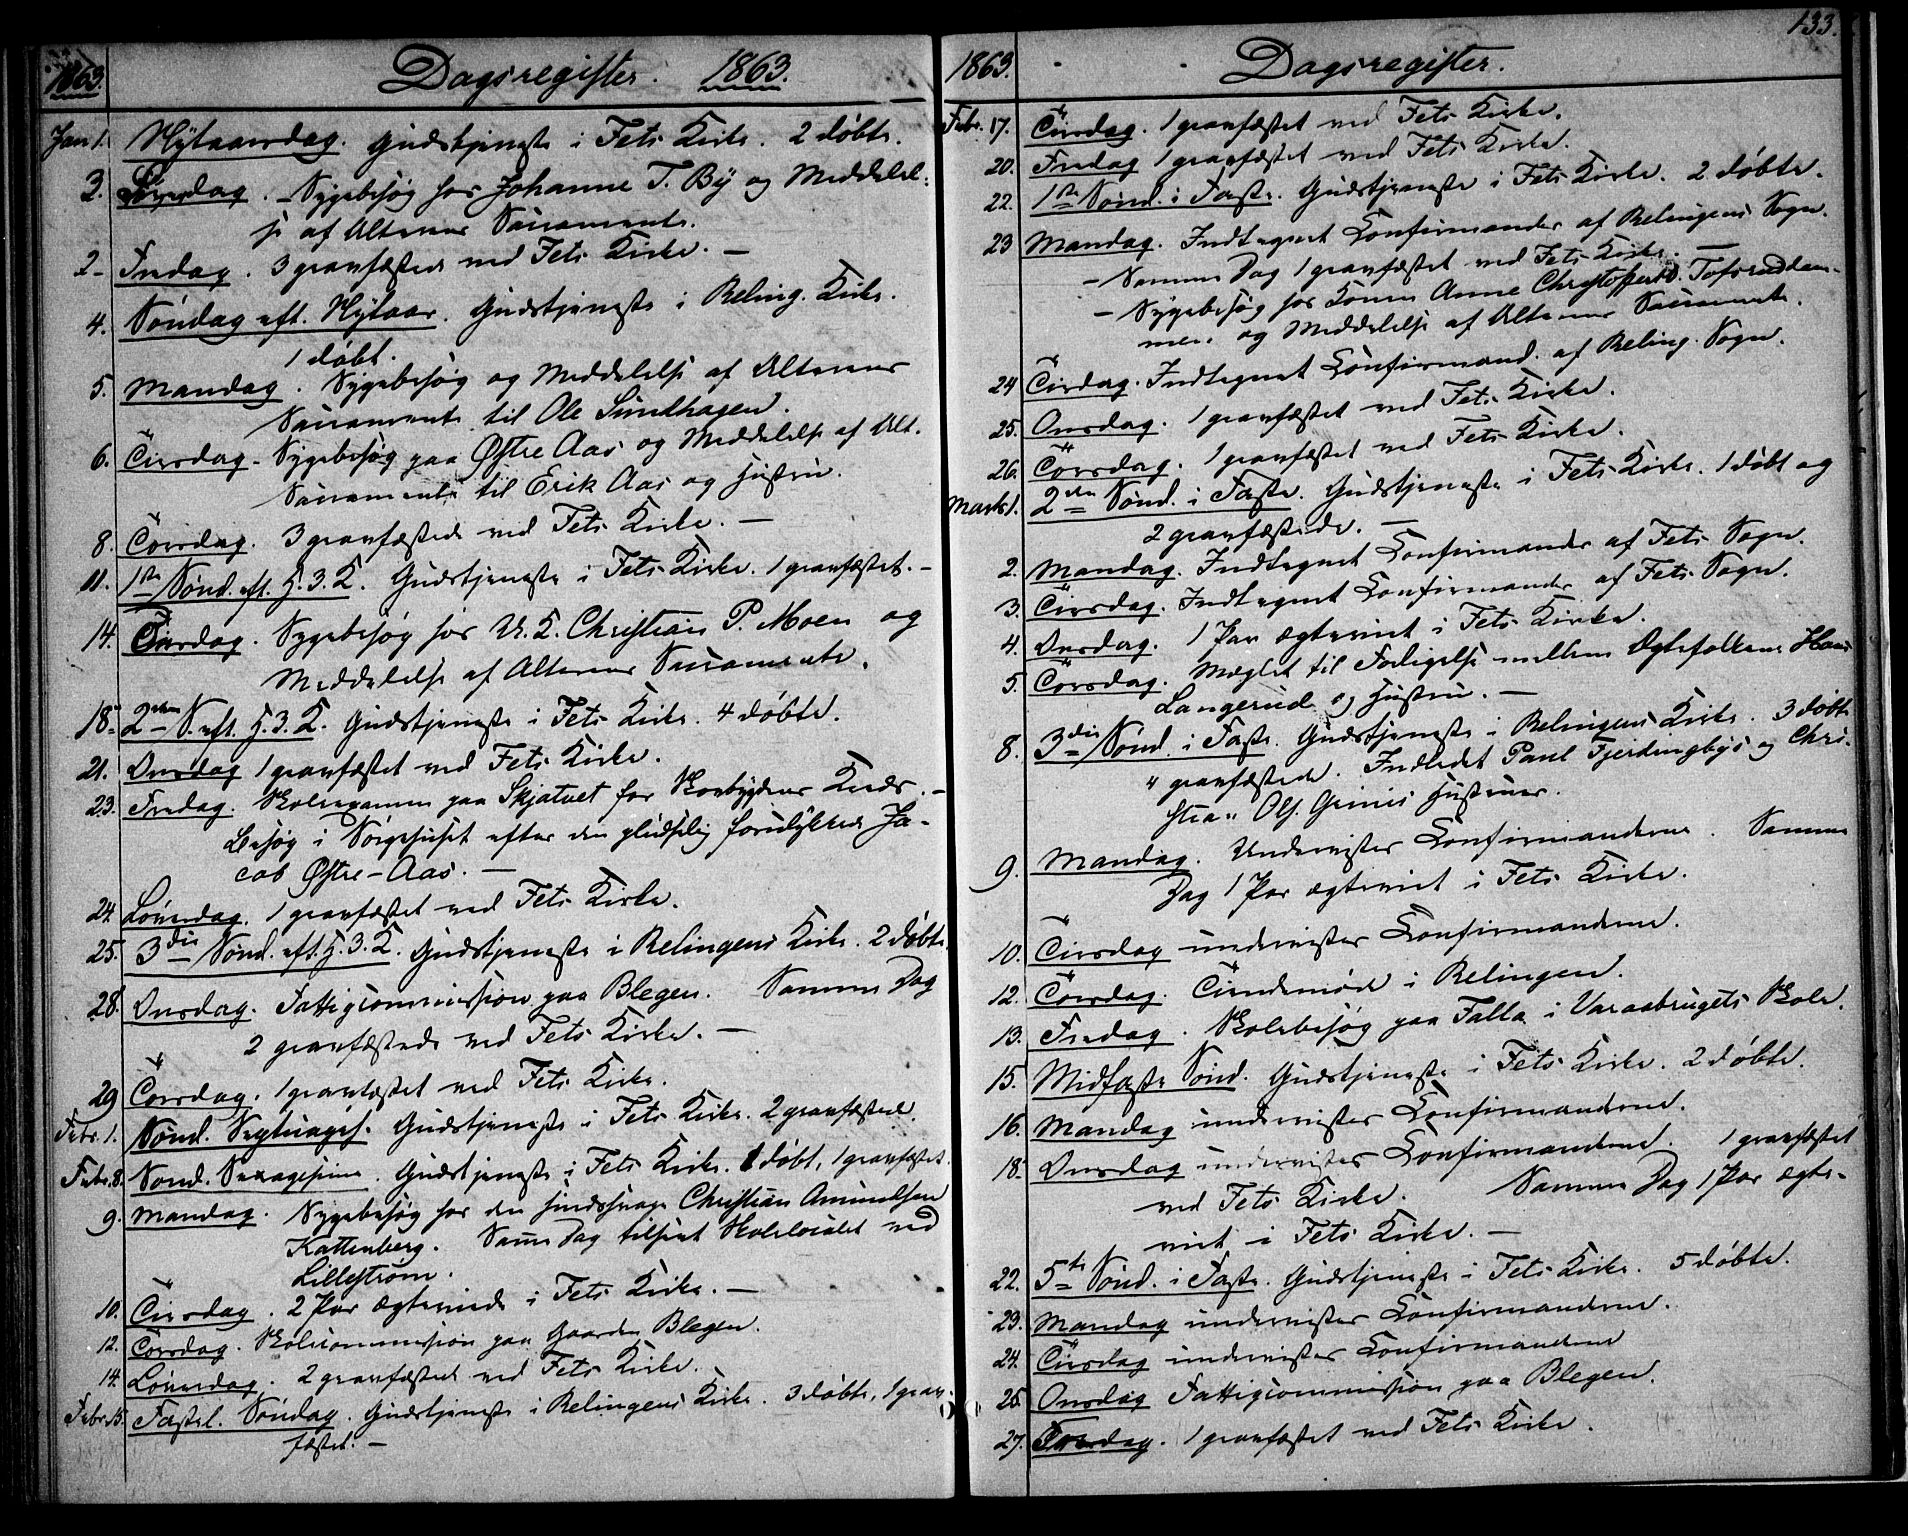 1863. Dagsregister. 1863.
Jan 1. Nytaarsdag. Gudstjeneste i Fets Kirke. 2 døbte.
3. Løverdag. Sygebesøg hos Johanne T. By og Meddelel-
se af Alterens Sacramente.
2 Fredag. 3 gravfæstede ved Fets Kirke. —
4. Søndag eft. Nytaar. Gudstjeneste i Reling. Kirke.
1 døbt.
5. Mandag. Sygebesøg og Meddelelse af Alterens
Sacramente til Ole Sundhagen.
6. Tirsdag. Sygebesøg paa Østre Aas og Meddelelse af Alt.
Sacramente til Erik Aas og Hustru.
8. Torsdag. 3 gravfæstede ved Fets Kirke. —
11. 1ste Sønd. eft. H. 3. K. Gudstjeneste i Fets Kirke. 1 gravfæstet. —
14. Onsdag. Sygebesøg hos U. K. Christian P. Moen og
Meddelelse af Alterens Sacramente.
18. 2den S. eft. H. 3. K. Gudstjeneste i Fets Kirke. 4 døbte.
21. Onsdag 1 gravfæstet ved Fets Kirke.
23. Fredag. Skoleexamen paa Skjatvet for Roebygdens Kreds. —
Besøg i Sørgehuset efter den pludselig forulykkede Ja-
cob Østre-Aas. —
24. Løverdag. 1 gravfæstet ved Fets Kirke.
25. 3die Sønd. eft. H. 3. K. Gudstjeneste i Relingens Kirke. 2 døbte.
28. Onsdag. Fattigcommission paa Blegen. Samme Dag
2 gravfæstede ved Fets Kirke. —
29 Torsdag. 1 gravfæstet ved Fets Kirke.
Febr. 1. Sønd. Septuages. Gudstjeneste i Fets Kirke. 2 gravfæstede.
Febr. 8. Sønd. Sexagesima. Gudstjeneste i Fets Kirke. 1 døbt, 1 gravfæstet.
9. Mandag. Sygebesøg hos den sindssvage Christian Amundsen
Kattenberg. Samme Dag tilseet Skolelocalet ved
Lillestrøm.
10. Tirsdag. 2 Par ægteviede i Fets Kirke. —
12. Torsdag. Skolecommission paa Gaarden Blegen.
14. Løverdag. 2 gravfæstede ved Fets Kirke.
Febr. 15. Fastel. Søndag. Gudstjeneste i Relingens Kirke. 3 døbte, 1 grav-
fæstet. —
1863. Dagsregister. 133.
Febr. 17. Tirsdag. 1 gravfæstet ved Fets Kirke.
20. Fredag 1 gravfæstet ved Fets Kirke.
22. 1ste Sønd. i Faste. Gudstjeneste i Fets Kirke. 2 døbte.
23 Mandag. Indtegnet Confirmander af Relingens Sogn.
— Samme Dag 1 gravfæstet ved Fets Kirke. —
— Sygebesøg hos Konen Anne Christophersd. Tofsruddam-
men. og Meddelelse af Alterens Sacramente.
24 Tirsdag. Indtegnet Confirmand. af Reling. Sogn.
25. Onsdag. 1 gravfæstet ved Fets Kirke.
26. Torsdag. 1 gravfæstet ved Fets Kirke.
Marts 1. 2den Sønd. i Faste. Gudstjeneste i Fets Kirke. 1 døbt og
2 gravfæstede. —
2. Mandag. Indtegnet Confirmander af Fets Sogn.
3. Tirsdag. Indtegnet Confirmander af Fets Sogn.
4. Onsdag. 1 Par ægteviet i Fets Kirke.
5. Torsdag. Mæglet til Forligelse mellem Ægtefolkene Hans
Langerud og Hustru. —
8. 3die Sønd. i Faste. Gudstjeneste i Relingens Kirke. 3 døbte
4 gravfæstede. Indledet Paul Fjerdingbys og Chri-
stian Ols. Grinis Hustruer.
9. Mandag. Underviste Confirmanderne. Samme
Dag 1 Par ægteviet i Fets Kirke.
10. Tirsdag underviste Confirmanderne.
12. Torsdag. Tiendemøde i Relingen.
13. Fredag. Skolebesøg paa Falla i Varaabrugets Skole.
15. Midfaste Sønd. Gudstjeneste i Fets Kirke. 2 døbte.
16. Mandag underviste Confirmanderne.
18. Onsdag underviste Confirmanderne. 1 gravfæstet
ved Fets Kirke. Samme Dag 1 Par ægte-
viet i Fets Kirke. —
22. 5te Sønd. i Faste. Gudstjeneste i Fets Kirke. 5 døbte.
23. Mandag underviste Confirmanderne.
24. Tirsdag underviste Confirmanderne
25. Onsdag Fattigcommission paa Blegen.
27. Fredag. 1 gravfæstet ved Fets Kirke.